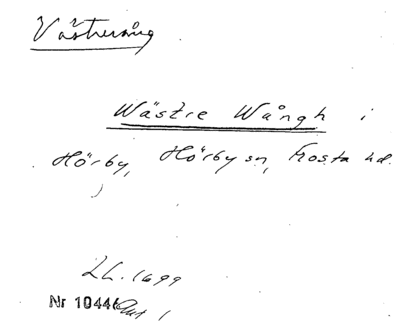 Västerång
Wästre Wångh i
Hörby, Hörby sn, Frosta hd.
LL. 1699
Nr 10446